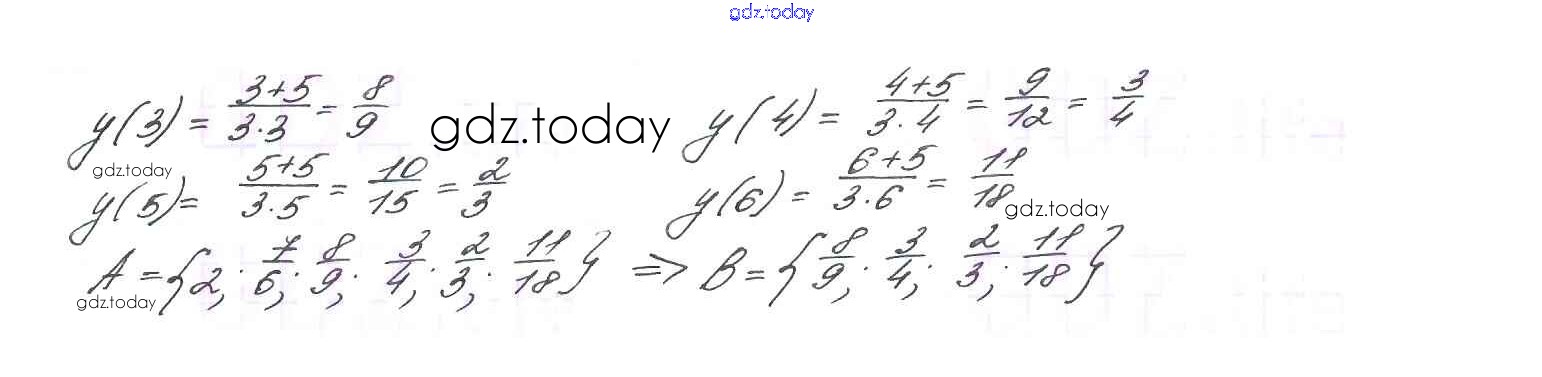 gdz.today
y(3) = \frac{3+5}{3·3} = \frac{8}{9} gdz.today y(4) = \frac{4+5}{3·4} = \frac{9}{12} = \frac{3}{4}
gdz.today
y(5) = \frac{5+5}{3·5} = \frac{10}{15} = \frac{2}{3} y(6) = \frac{6+5}{3·6} = \frac{11}{18}
gdz.today
A = {2; \frac{7}{6}; \frac{8}{9}; \frac{3}{4}; \frac{2}{3}; \frac{11}{18}} => B = {\frac{8}{9}; \frac{3}{4}; \frac{2}{3}; \frac{11}{18}}
gdz.today